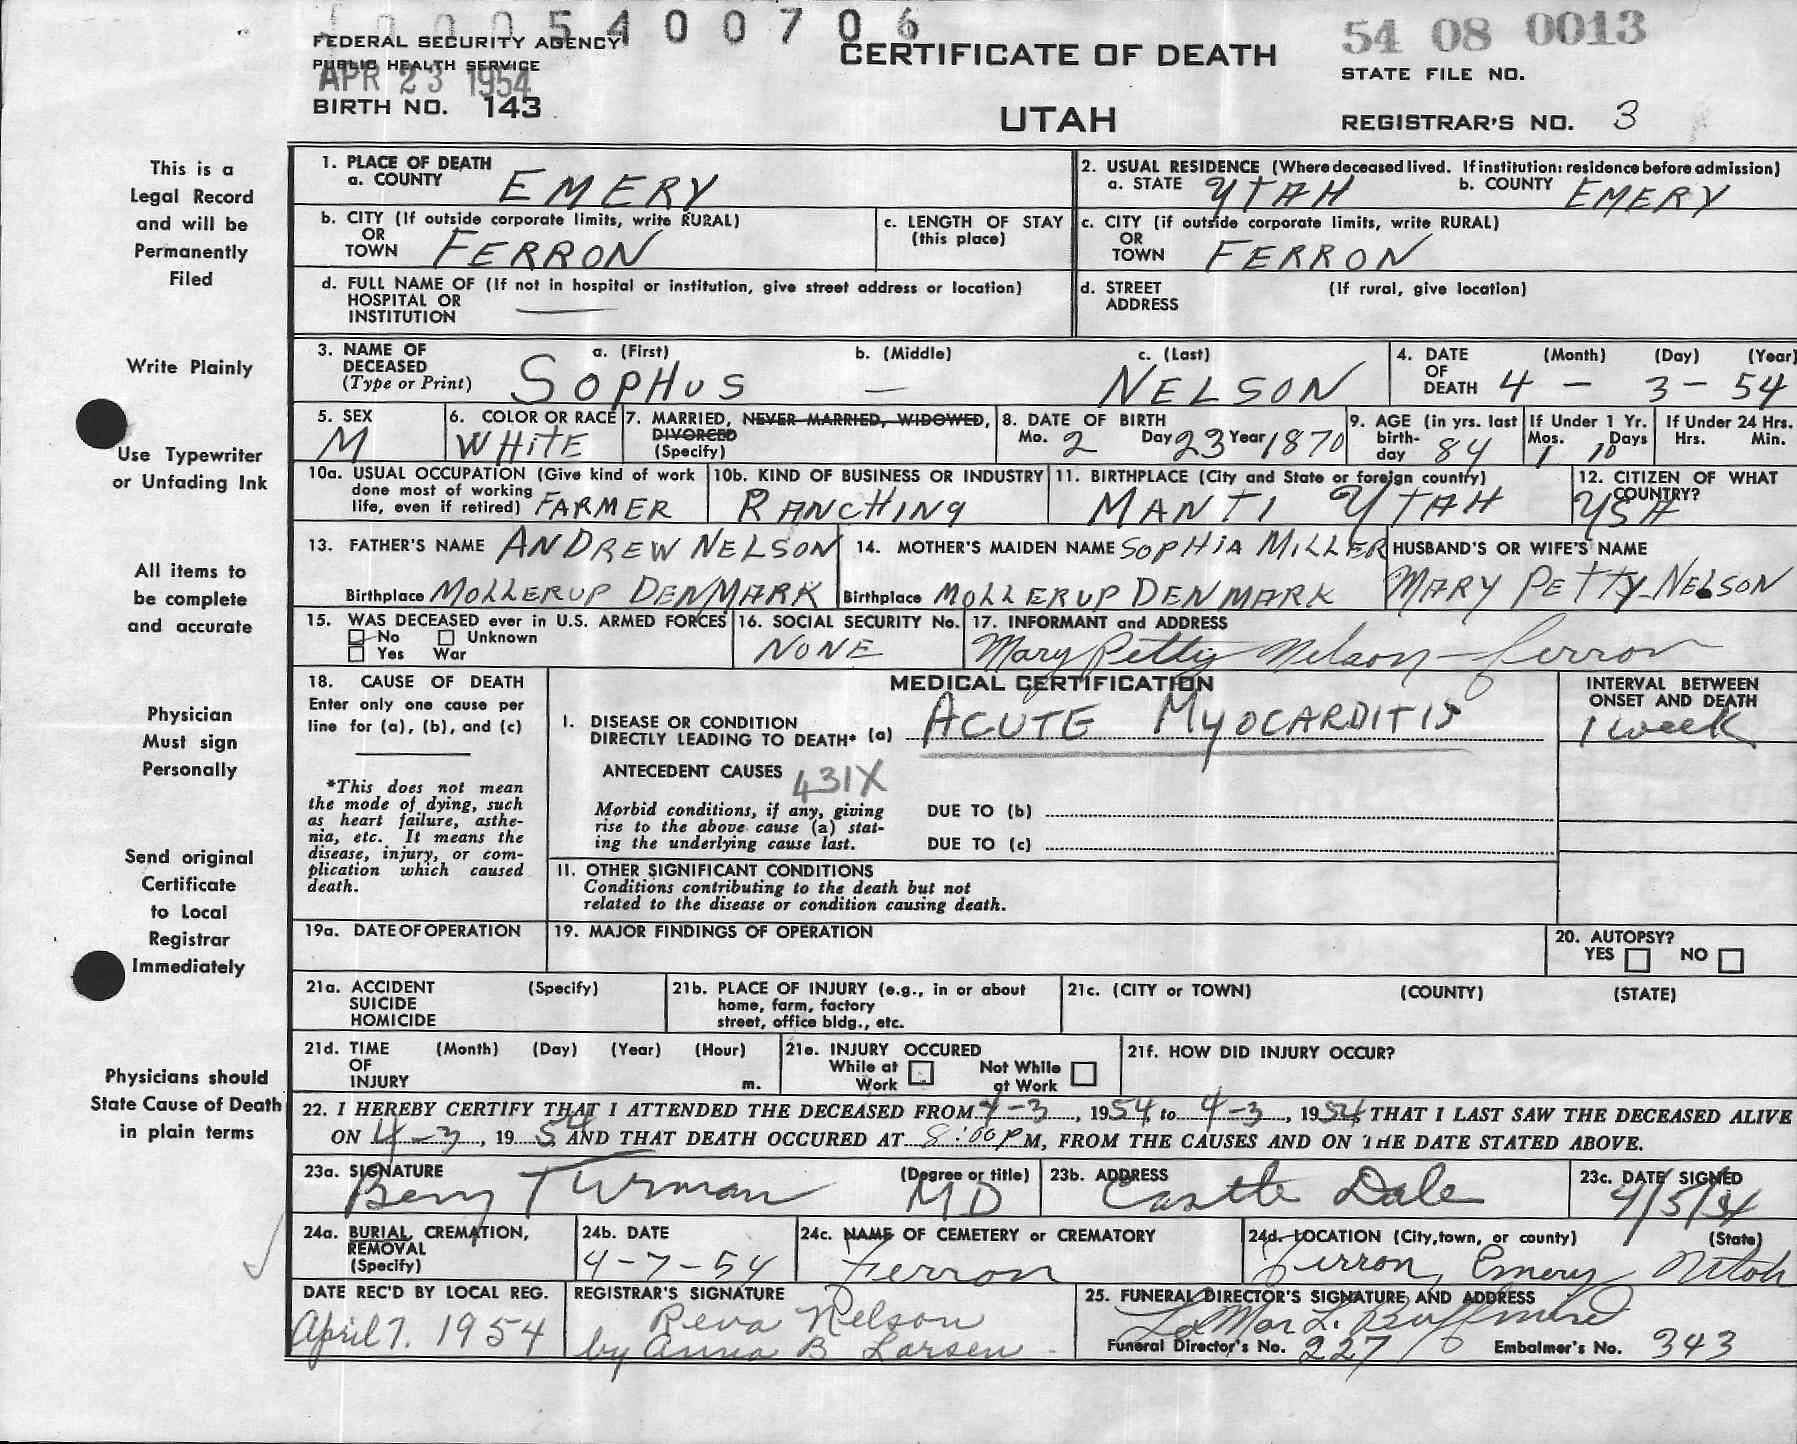 0005400706
FEDERAL SECURITY AGENCY
PUBLIC HEALTH SERVICE
APR 23 1954
BIRTH NO. 143
CERTIFICATE OF DEATH
UTAH
54 08 0013
STATE FILE NO.
REGISTRAR'S NO. 3
This is a
Legal Record
and will be
Permanently
Filed
Write Plainly
Use Typewriter
or Unfading Ink
All items to
be complete
and accurate
Physician
Must sign
Personally
Send original
Certificate
to Local
Registrar
Immediately
Physicians should
State Cause of Death
in plain terms
1. PLACE OF DEATH
a. COUNTY EMERY
2. USUAL RESIDENCE (Where deceased lived. If institution: residence before admission)
a. STATE UTAH b. COUNTY EMERY
b. CITY (If outside corporate limits, write RURAL)
OR
TOWN FERRON
c. LENGTH OF STAY
(this place)
c. CITY (if outside corporate limits, write RURAL)
OR
TOWN FERRON
d. FULL NAME OF (If not in hospital or institution, give street address or location)
HOSPITAL OR
INSTITUTION —
d. STREET (If rural, give location)
ADDRESS
3. NAME OF DECEASED (Type or Print)
a. (First) b. (Middle) c. (Last)
SOPHUS — NELSON
4. DATE OF DEATH (Month) (Day) (Year)
4 – 3 – 54
5. SEX
M
6. COLOR OR RACE
WHITE
7. MARRIED, NEVER MARRIED, WIDOWED,
DIVORCED
(Specify)
8. DATE OF BIRTH
Mo. 2 Day 23 Year 1870
9. AGE (in yrs. last
birth-
day 84
If Under 1 Yr.
Mos. Days
1 10
If Under 24 Hrs.
Hrs. Min.
10a. USUAL OCCUPATION (Give kind of work
done most of working
life, even if retired) FARMER
10b. KIND OF BUSINESS OR INDUSTRY
RANCHING
11. BIRTHPLACE (City and State or foreign country)
MANTI UTAH
12. CITIZEN OF WHAT
COUNTRY?
USA
13. FATHER'S NAME ANDREW NELSON
Birthplace MOLLERUP DENMARK
14. MOTHER'S MAIDEN NAME SOPHIA MILLER
Birthplace MOLLERUP DENMARK
HUSBAND'S OR WIFE'S NAME
MARY PETTY NELSON
15. WAS DECEASED ever in U.S. ARMED FORCES
No Unknown
Yes War
16. SOCIAL SECURITY No.
NONE
17. INFORMANT and ADDRESS
Mary Petty Nelson – Ferron
18. CAUSE OF DEATH
Enter only one cause per
line for (a), (b), and (c)
*This does not mean
the mode of dying, such
as heart failure, asthe-
nia, etc. It means the
disease, injury, or com-
plication which caused
death.
MEDICAL CERTIFICATION
I. DISEASE OR CONDITION
DIRECTLY LEADING TO DEATH* (a) ACUTE MYOCARDITIS
INTERVAL BETWEEN
ONSET AND DEATH
1 week
ANTECEDENT CAUSES 431X
Morbid conditions, if any, giving
rise to the above cause (a) stat-
ing the underlying cause last.
DUE TO (b)
DUE TO (c)
11. OTHER SIGNIFICANT CONDITIONS
Conditions contributing to the death but not
related to the disease or condition causing death.
19a. DATE OF OPERATION
19. MAJOR FINDINGS OF OPERATION
20. AUTOPSY?
YES NO
21a. ACCIDENT (Specify)
SUICIDE
HOMICIDE
21b. PLACE OF INJURY (e.g., in or about
home, farm, factory
street, office bldg., etc.
21c. (CITY or TOWN) (COUNTY) (STATE)
21d. TIME (Month) (Day) (Year) (Hour)
OF
INJURY m.
21e. INJURY OCCURED
While at Work Not While at Work
21f. HOW DID INJURY OCCUR?
22. I HEREBY CERTIFY THAT I ATTENDED THE DECEASED FROM 4-3, 1954 to 4-3, 1954 THAT I LAST SAW THE DECEASED ALIVE
ON 4-3, 1954 AND THAT DEATH OCCURED AT 8:00 P M, FROM THE CAUSES AND ON THE DATE STATED ABOVE.
23a. SIGNATURE (Degree or title)
Turman MD
23b. ADDRESS
Castle Dale
23c. DATE SIGNED
4/5/54
24a. BURIAL, CREMATION,
REMOVAL
(Specify)
24b. DATE
4-7-54
24c. NAME OF CEMETERY OR CREMATORY
Ferron
24d. LOCATION (City, town, or county) (State)
Ferron, Emery Utah
DATE REC'D BY LOCAL REG.
April 7. 1954
REGISTRAR'S SIGNATURE
Reva Nelson
by Anna B Larsen
25. FUNERAL DIRECTOR'S SIGNATURE AND ADDRESS
LaMar L.
Funeral Director's No. 227 Embalmer's No. 343